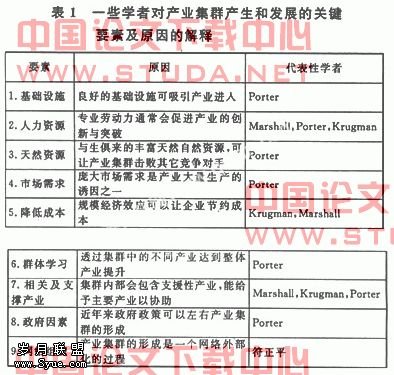 表 1 一些学者对产业集群产生和发展的关键
要素及原因的解释
中国论文下载中心
WWW.STUDA.NET
要素 原因 代表性学者
1.基础设施 良好的基础设施可吸引产业进入 Porter
2.人力资源 专业劳动力通常会促进产业的创
新与突破 Marshall,Porter,Krugman
3.天然资源 与生俱来的丰富天然自然资源,可
让产业集群击败其它竞争对手 Porter
4.市场需求 庞大市场需求是产业大量生产的
诱因之一 Porter
5.降低成本 规模经济效应可以让企业节约成
本 Krugman,Marshall
中国论
www.s
6.群体学习 透过集群中的不同产业达到整体
产业提升 Porter
7.相关及支
撑产业 集群内部会包含支援性产业,能给
予主要产业以协助 Marshall,Krugman,Porter
8.政府因素 近年来政府政策可以左右产业集群
的形成 Porter
9. 产业集群的形成是一个网络外部
化的过程 符正平
岁月联盟
www.Syue.com
中国论文下载中心